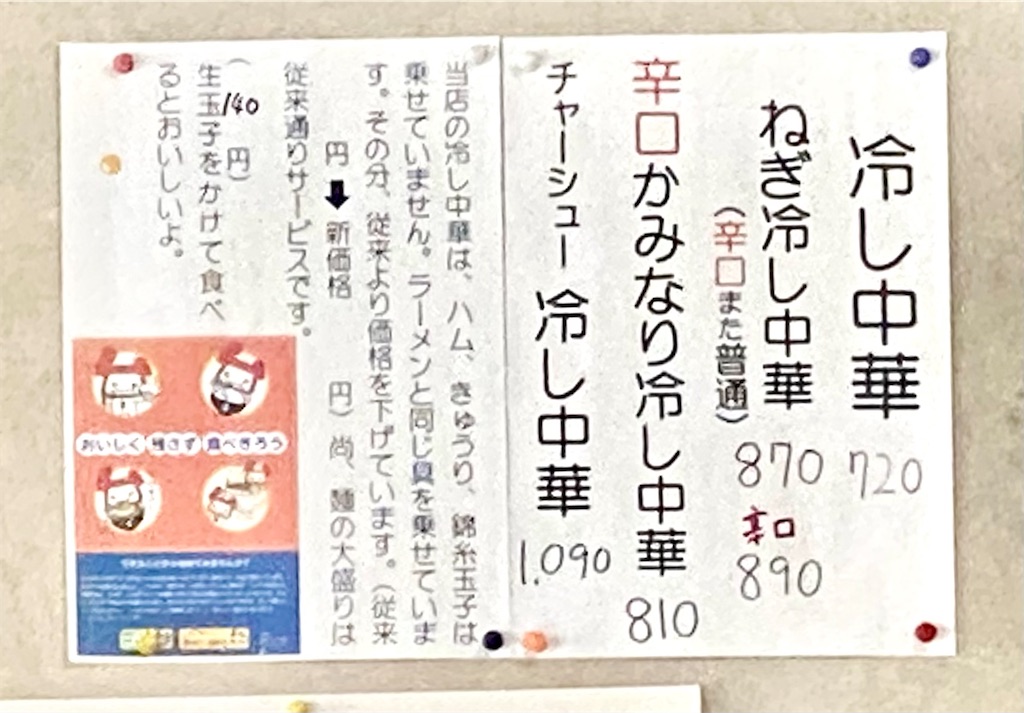 冷し中華
720
ねぎ冷し中華
(辛口また普通)
870
辛口
890
辛口かみなり冷し中華
810
チャーシュー冷し中華
1,090
当店の冷し中華は、ハム、きゅうり、錦糸玉子は
乗せていません。ラーメンと同じ具を乗せていま
す。その分、従来より価格を下げています。(従来
円➡新価格 円)尚、麺の大盛りは
従来通りサービスです。
(140円)
生玉子をかけて食べ
るとおいしいよ。
おいしく 残さず 食べきろう